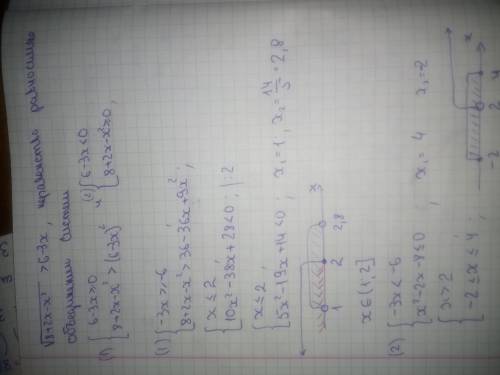 √8+2x-x² > 6-3x, неравенство равносильно
объединению систем
(1) { 6-3x≥0 и (2) { 6-3x<0
8+2x-x² > (6-3x)² 8+2x-x²≥0;
(1) { -3x≥-6;
8+2x-x² > 36-36x+9x²;
{ x≤2;
10x²-38x+28<0; |:2
{ x≤2;
5x²-19x+14<0; x₁=1; x₂=14/5=2,8
1 2 2,8 x
x∈(1;2]
(2) { -3x<-6
x²-2x-8≤0; x₁=4 x₂=-2
{ x>2
-2≤x≤4;
-2 2 4 x